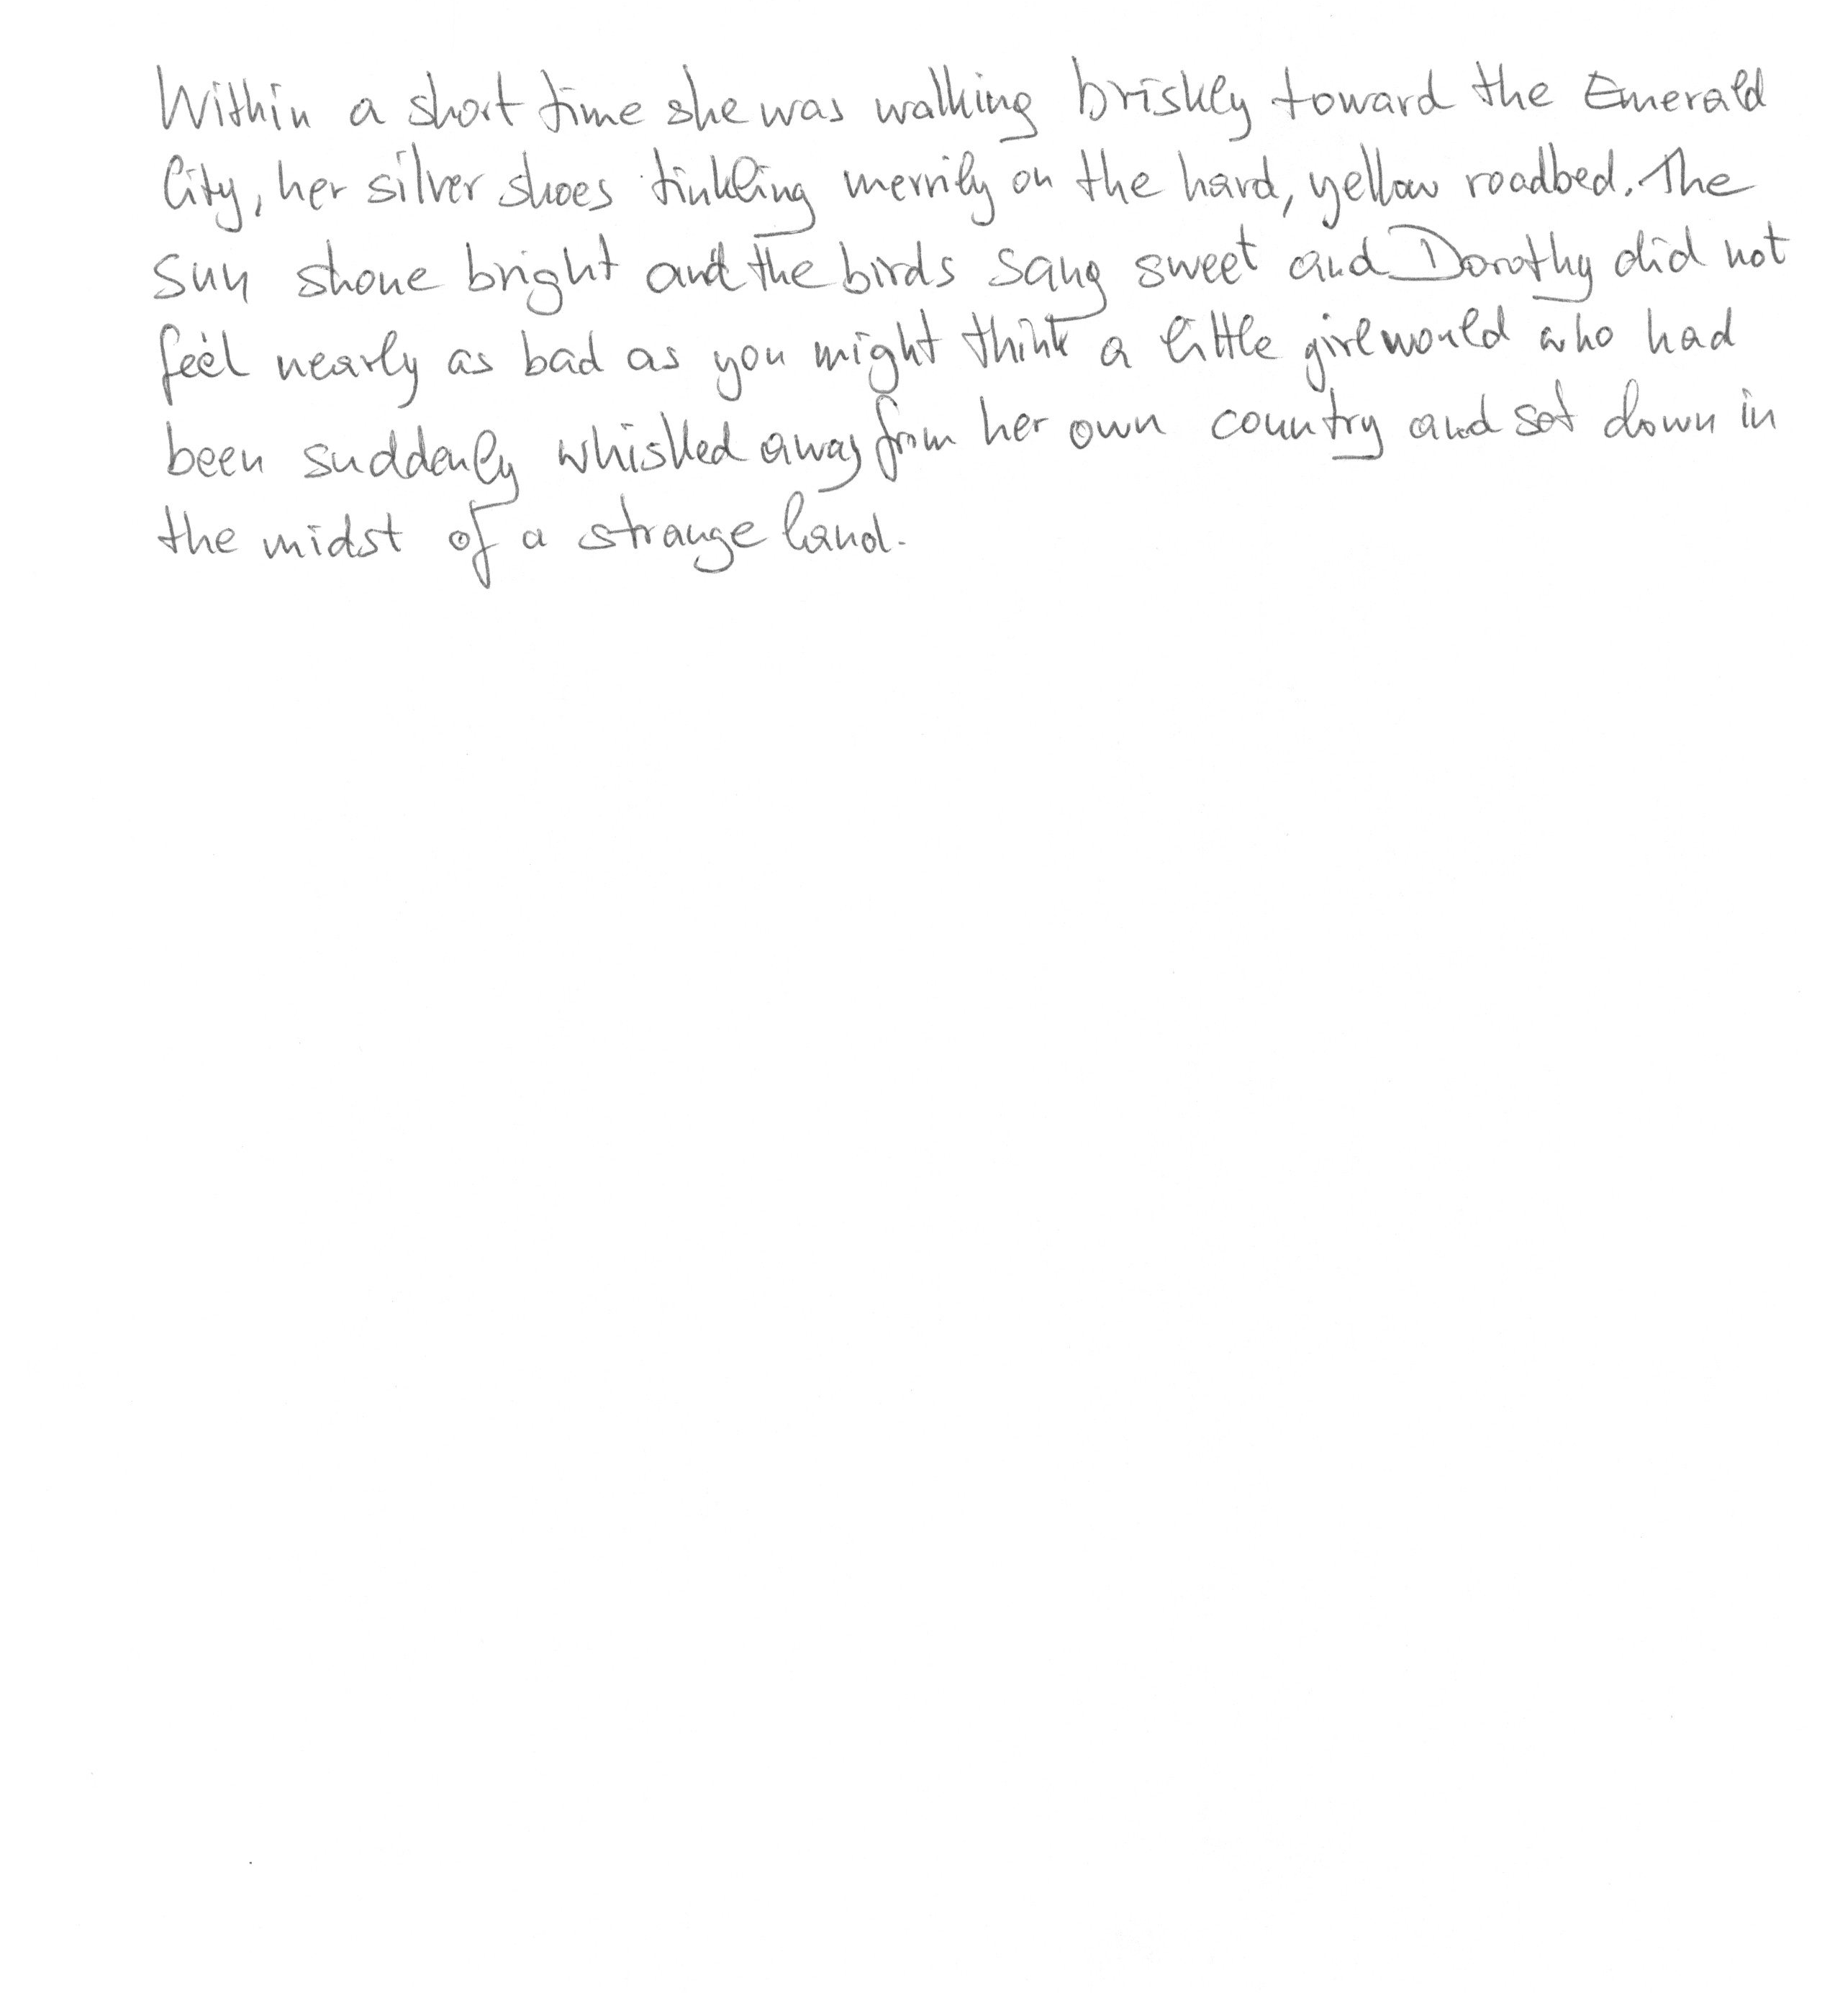 Within a short time she was walking briskly toward the Emerald
City, her silver shoes tinkling merrily on the hard, yellow roadbed. The
sun shone bright and the birds sang sweet and Dorothy did not
feel nearly as bad as you might think a little girl would who had
been suddenly whisked away from her own country and set down in
the midst of a strange land.